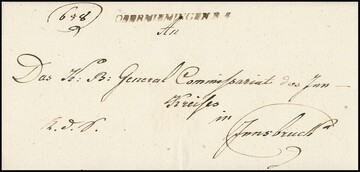 638
OBERMIEMINGEN R. 4
An
Das K: B: General Commissariat des Inn-
Kreises
in
R. d. S. Innsbruck